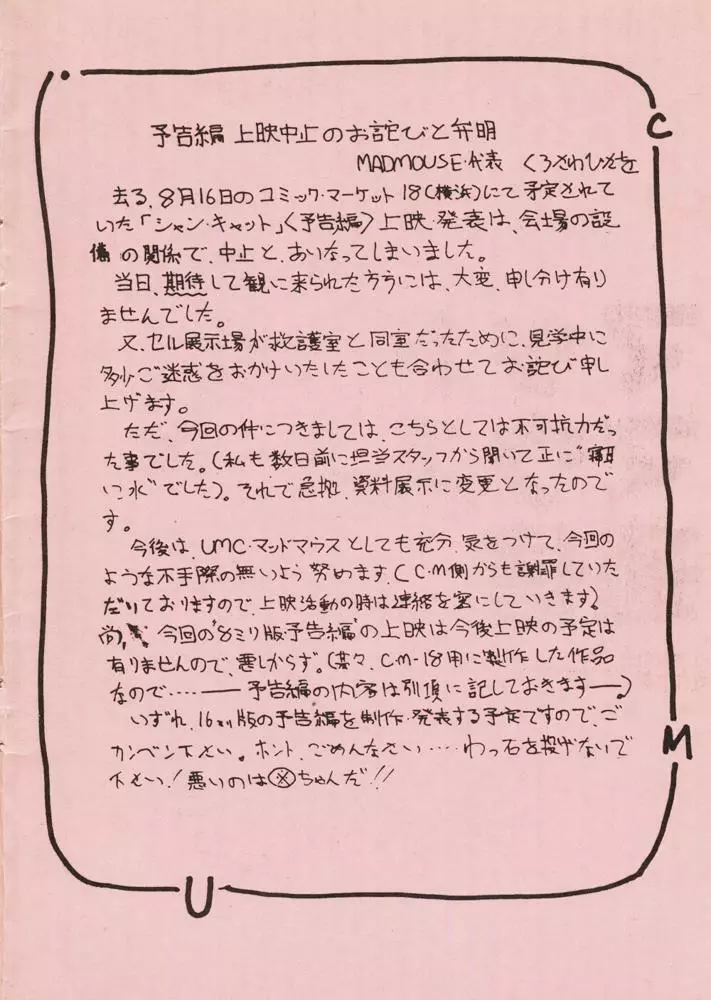 予告編 上映中止のお詫びと弁明
MADMOUSE・代表 くろさわひさを
去る、8月16日のコミック・マーケット18(横浜)にて予定されて
いた「シャン・キャット」〈予告編〉上映・発表は、会場の設
備の関係で、中止と、あいなってしまいました。
当日、期待して観に来られた方々には、大変、申し分け有り
ませんでした。
又、セル展示場が救護室と同室だったために、見学中に
多少ご迷惑をおかけいたしたことも合わせてお詫び申し
上げます。
ただ、今回の件につきましては、こちらとしては不可抗力だっ
た事でした。(私も数日前に担当スタッフから聞いて正に“寝耳
に水”でした)。それで急拠、資料展示に変更となったので
す。
今後は、UMC・マッドマウスとしても充分、気をつけて、今回の
ような不手際の無いよう努めます。(C・M側からも謝罪していた
だいておりますので、上映活動の時は連絡を密にしていきます)
尚、今回の“8ミリ版・予告編”の上映は今後上映の予定は
有りませんので、悪しからず。(元々、CM-18用に製作した作品
なので……――予告編の内容は別項に記しておきます――。)
いずれ、16ミリ版の予告編を制作・発表する予定ですので、ご
カンベン下さい。ホント、ごめんなさい……わっ石を投げないで
下さい!悪いのは ちゃんだ!!
C
M
U